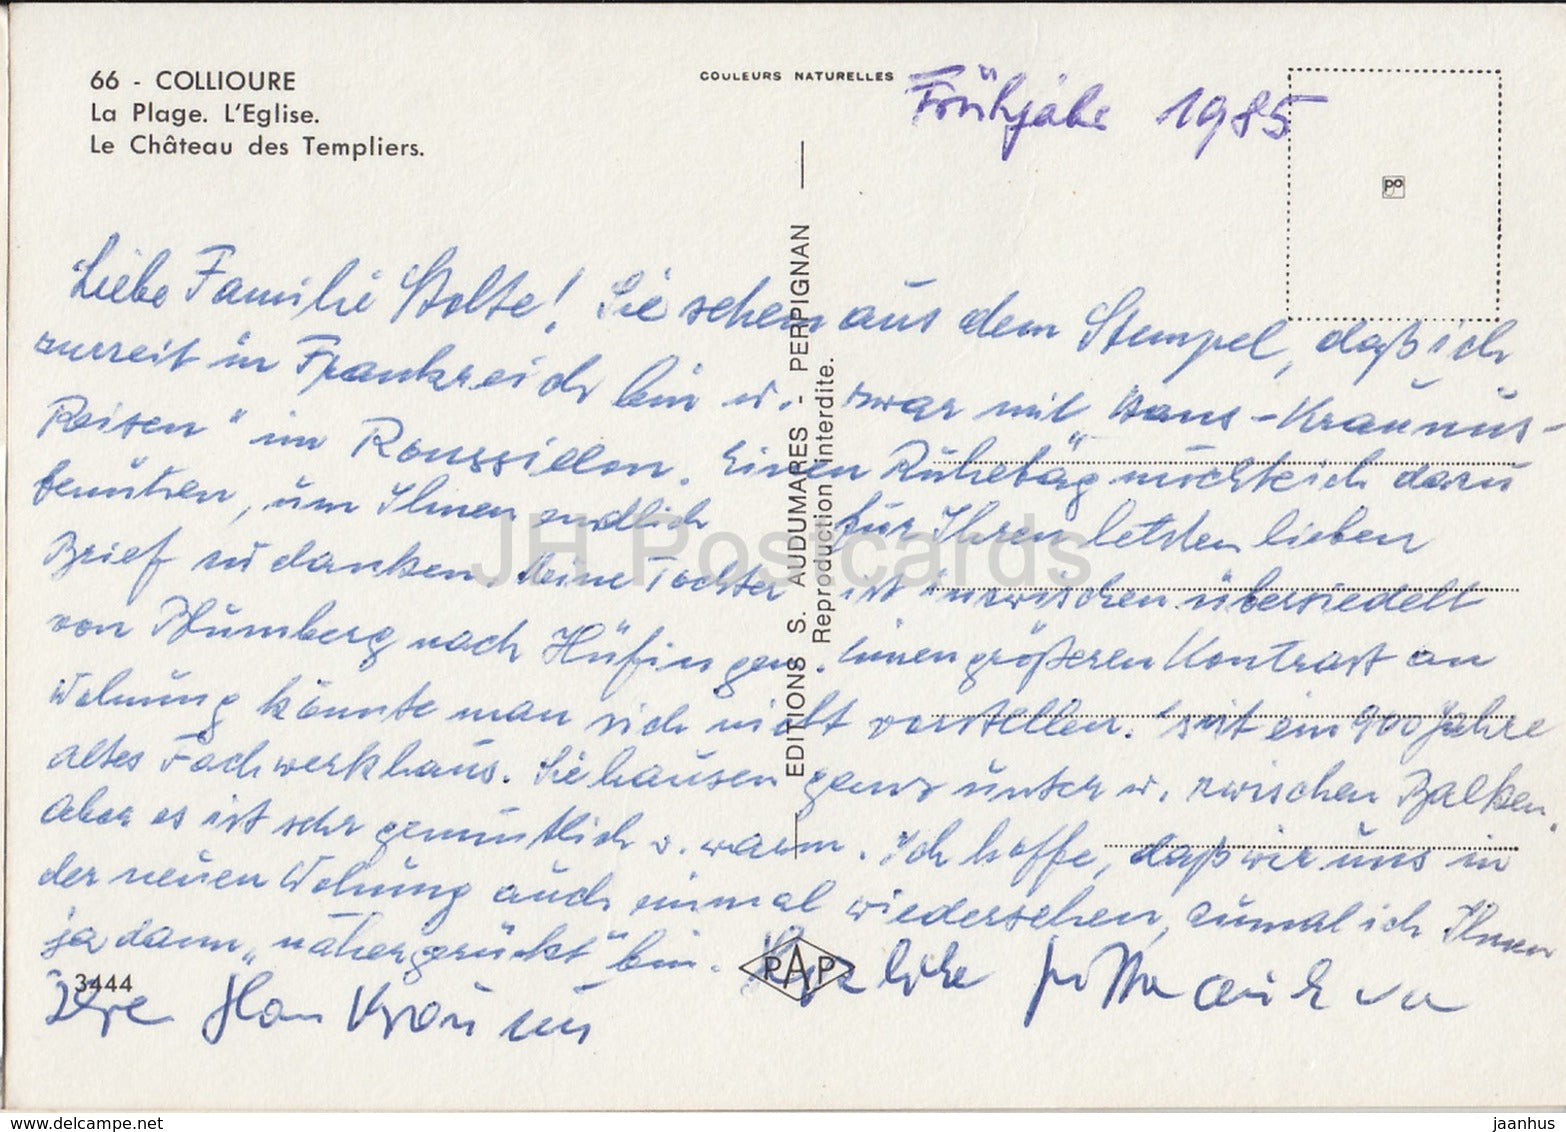 66 - COLLIOURE
La Plage. L'Eglise.
Le Château des Templiers.
COULEURS NATURELLES
Frühjahr 1985
po
Liebe Familie Stolte! Sie sehen aus dem Stempel, daß ich
zurzeit in Frankreich bin u. zwar mit "Hans-Kraunus-
Reisen" im Roussillon. Einen Ruhetag möchte ich dazu
benützen, um Ihnen endlich für Ihren letzten lieben
Brief zu danken. Meine Tochter ist inzwischen übersiedelt
von Blumberg nach Hüfingen. Einen größeren Kontrast an
Wohnung könnte man sich nicht vorstellen. Seit ein 900 Jahre
altes Fachwerkhaus. Sie hausen ganz unter u. zwischen Balken.
Aber es ist sehr gemütlich u. warm. Ich hoffe, daß wir uns in
der neuen Wohnung auch einmal wiedersehen, zumal ich Ihnen
ja dann "näher gerückt" bin. Herzliche Grüße auch von
Ihre
EDITIONS S. AUDUMARES - PERPIGNAN
Reproduction interdite.
3444
PAP
JH Postcards
www.delcampe.net
jaanhus